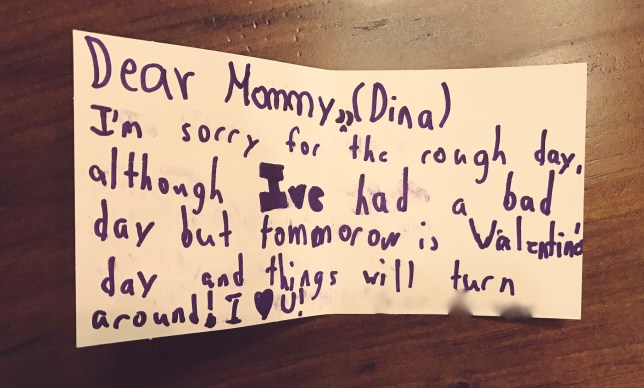 Dear Mommy,,(Dina)
I'm sorry for the rough day,
although I've had a bad
day but tommorow is Valentin's
day and things will turn
around! I ♥ U!